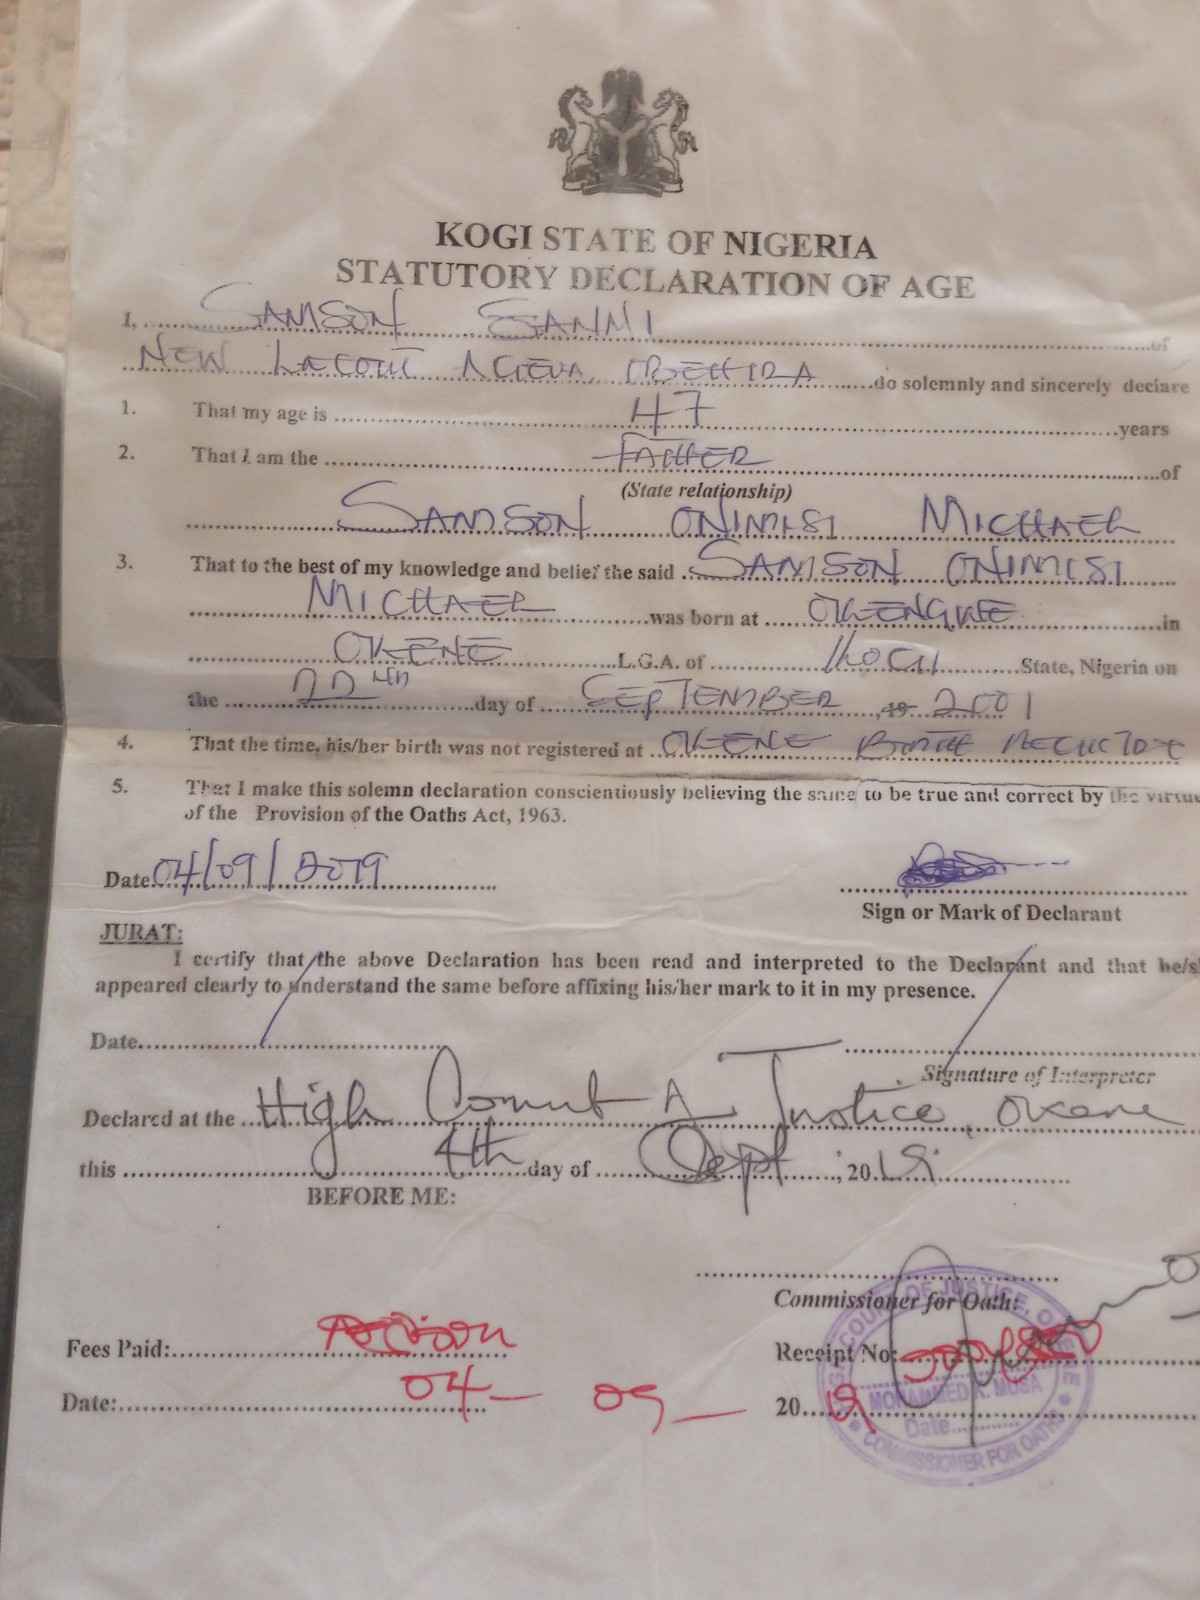 KOGI STATE OF NIGERIA
STATUTORY DECLARATION OF AGE
I, SAMSON SANMI of
NEW LAYOUT OBEHIRA do solemnly and sincerely declare
1. That my age is 47 years
2. That I am the FATHER of
(State relationship)
SAMSON ONIMISI MICHAEL
3. That to the best of my knowledge and belief the said SAMSON ONIMISI
MICHAEL was born at OKENGWE in
OKENE L.G.A. of KOGI State, Nigeria on
the 22ND day of SEPTEMBER, 19 2001
4. That the time, his/her birth was not registered at OKENE BIRTH
5. That I make this solemn declaration conscientiously believing the same to be true and correct by the virtue
of the Provision of the Oaths Act, 1963.
Date 04/09/2019
Sign or Mark of Declarant
JURAT:
I certify that the above Declaration has been read and interpreted to the Declarant and that he/s
appeared clearly to understand the same before affixing his/her mark to it in my presence.
Date
Signature of Interpreter
Declared at the High Court of Justice, Okene
this 4th day of Sept, 2019
BEFORE ME:
Commissioner for Oath:
Fees Paid:
Receipt No:
Date: 04 - 09 - 2019
COURT OF JUSTICE, O
MOHAMMED K. MUSA
Date
COMMISSIONER FOR OATHS